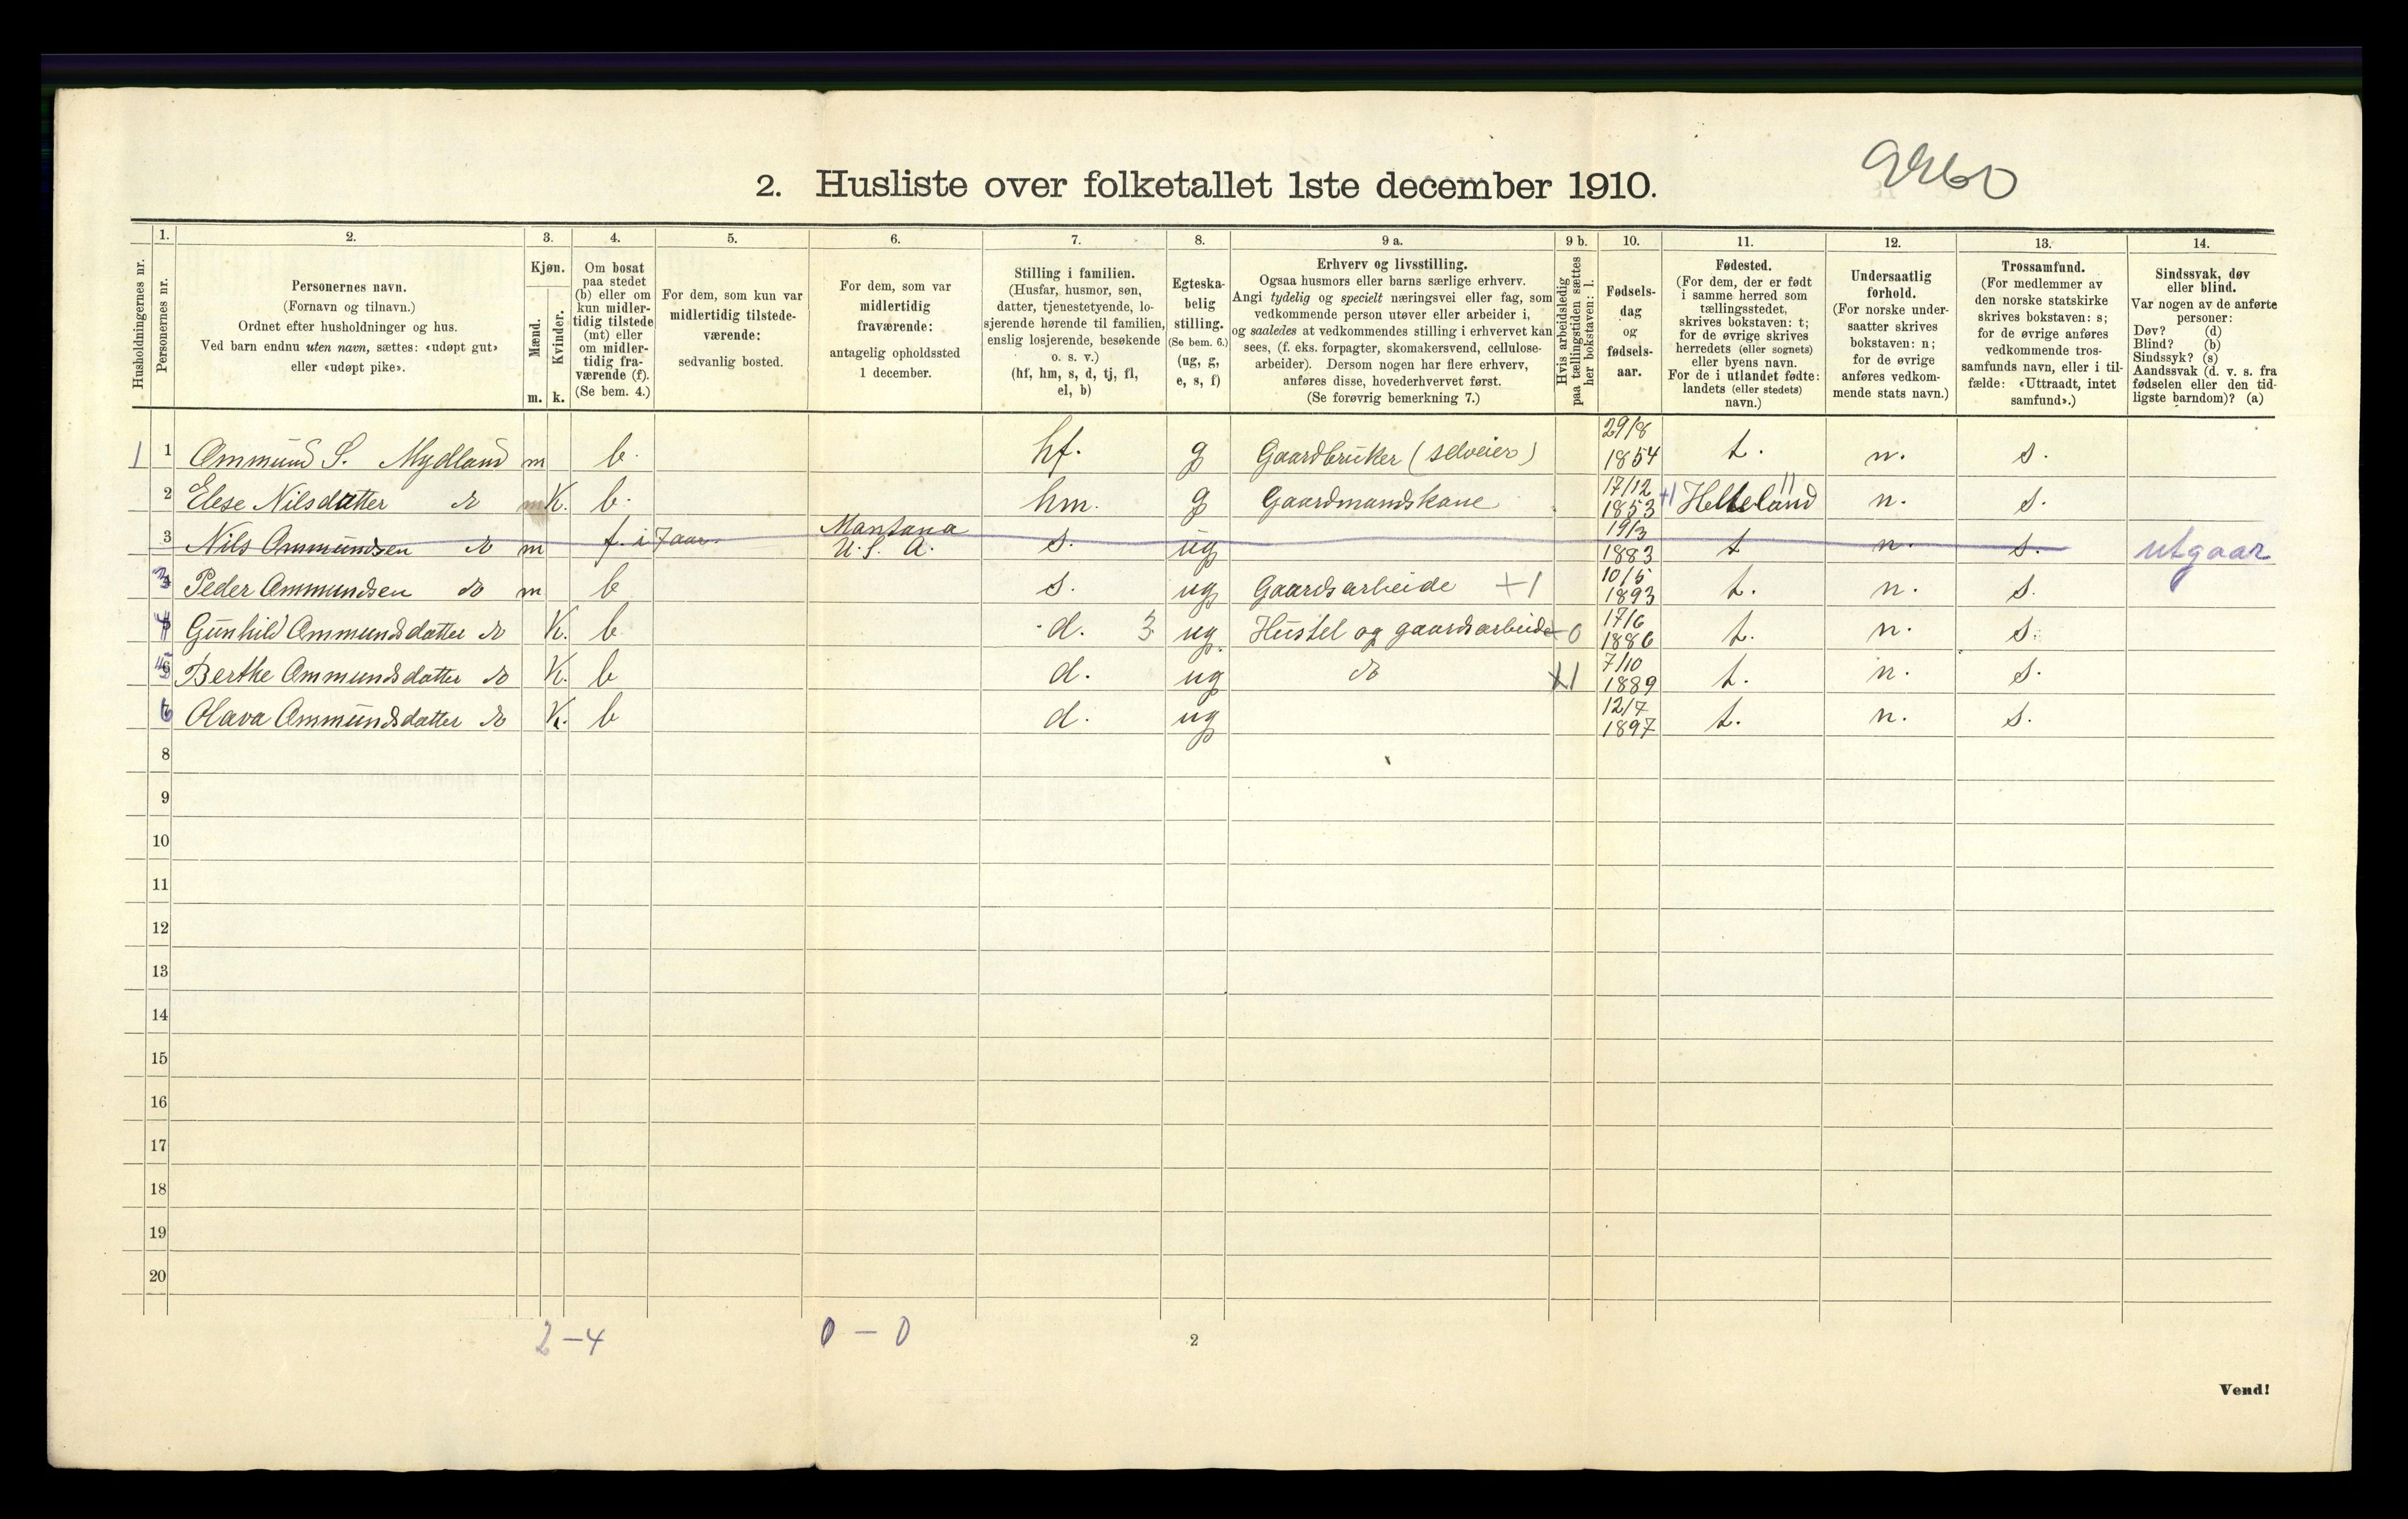 2. Husliste over folketallet 1ste december 1910.
9260
Husholdningernes nr.
1.
Personernes nr.
2.
Personernes navn.
(Fornavn og tilnavn.)
Ordnet efter husholdninger og hus.
Ved barn endnu uten navn, sættes: «udøpt gut»
eller «udøpt pike».
3.
Kjøn.
Mænd.
Kvinder.
m. k.
4.
Om bosat
paa stedet
(b) eller om
kun midler-
tidig tilstede
(mt) eller
om midler-
tidig fra-
værende (f).
(Se bem. 4.)
5.
For dem, som kun var
midlertidig tilstede-
værende:
sedvanlig bosted.
6.
For dem, som var
midlertidig
fraværende:
antagelig opholdssted
1 december.
7.
Stilling i familien.
(Husfar, husmor, søn,
datter, tjenestetyende, lo-
sjerende hørende til familien,
enslig losjerende, besøkende
o. s. v.)
(hf, hm, s, d, tj, fl,
el, b)
8.
Egteska-
belig
stilling.
(Se bem. 6.)
(ug, g,
e, s, f)
9 a.
Erhverv og livsstilling.
Ogsaa husmors eller barns særlige erhverv.
Angi tydelig og specielt næringsvei eller fag, som
vedkommende person utøver eller arbeider i,
og saaledes at vedkommendes stilling i erhvervet kan
sees, (f. eks. forpagter, skomakersvend, cellulose-
arbeider). Dersom nogen har flere erhverv,
anføres disse, hovederhvervet først.
(Se forøvrig bemerkning 7.)
9 b.
Hvis arbeidsledig
paa tællingstiden sættes
her bokstaven: l.
10.
Fødsels-
dag
og
fødsels-
aar.
11.
Fødested.
(For dem, der er født
i samme herred som
tællingsstedet,
skrives bokstaven: t;
for de øvrige skrives
herredets (eller sognets)
eller byens navn.
For de i utlandet fødte:
landets (eller stedets)
navn.)
12.
Undersaatlig
forhold.
(For norske under-
saatter skrives
bokstaven: n;
for de øvrige
anføres vedkom-
mende stats navn.)
13.
Trossamfund.
(For medlemmer av
den norske statskirke
skrives bokstaven: s;
for de øvrige anføres
vedkommende tros-
samfunds navn, eller i til-
fælde: «Uttraadt, intet
samfund».)
14.
Sindssvak, døv
eller blind.
Var nogen av de anførte
personer:
Døv? (d)
Blind? (b)
Sindssyk? (s)
Aandssvak (d. v. s. fra
fødselen eller den tid-
ligste barndom)? (a)
1 1 Ommund S. Mydland m b. hf. g Gaardbruker (selveier) 29/8 1854 t. n. s.
2 Elese Nilsdatter do K. b. hm. g Gaardmandskone 17/12 1853 +1 Helleland n. s.
3 Nils Ommundsen do m f. i 7 aar. Montana U. S. A. s. ug 19/3 1883 t n. s. utgaar
3 Peder Ommundsen do m b s. ug Gaardsarbeide +1 10/5 1893 t. n. s.
4 Gunhild Ommundsdatter do K. b d. 3 ug Husstel og gaardsarbeide 0 17/6 1886 t. n. s.
5 Berthe Ommundsdatter do K. b d. ug do +1 7/10 1889 t. n. s.
6 Olava Ommundsdatter do K. b d. ug 12/7 1897 t. n. s.
8
9
10
11
12
13
14
15
16
17
18
19
20
2 – 4 0 – 0
2
Vend!